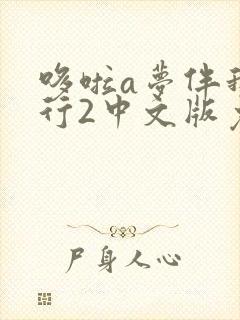 哆啦a梦伴
行2中文版
尸身人心